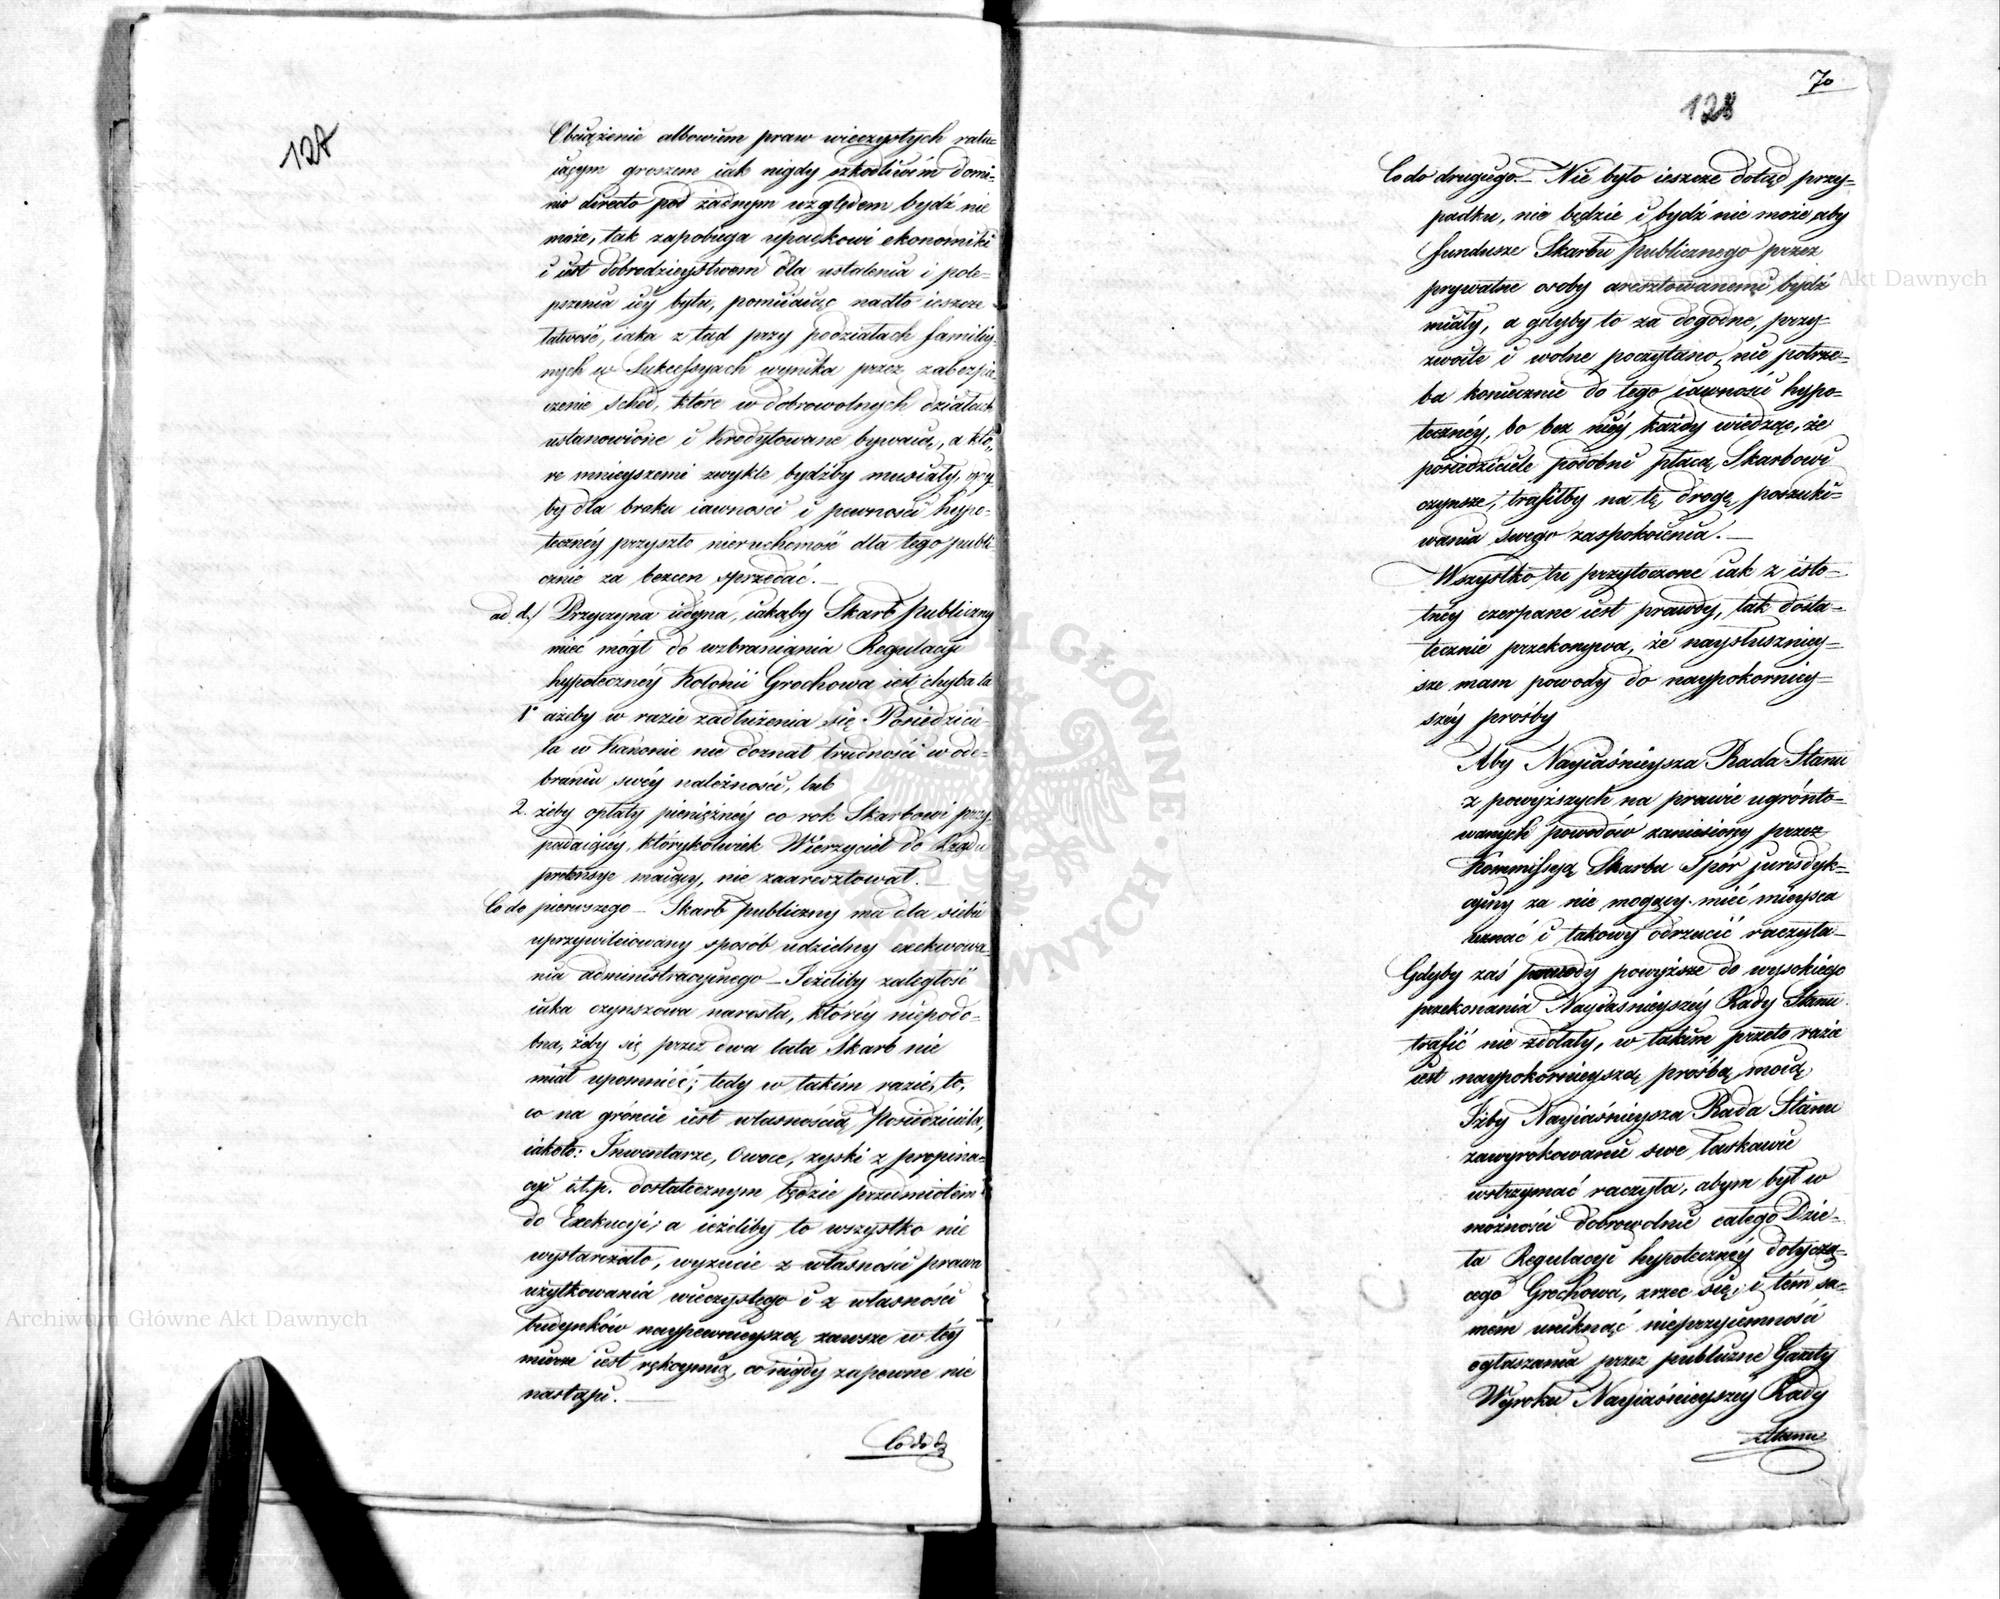 127
Obciążenie albowiem praw wieczystych ratu-
iącym groszem iak nigdy szkodliwém domi-
nio directo pod żadnym względem bydź nie
może, tak zapobiega upadkowi ekonomiki
i iest dobrodzieystwem dla ustalenia i pole-
pszenia iey bytu, pomiiaiąc nadto ieszcze
łatwość, iaka z tąd przy podziałach familiy-
nych w Sukcessyach wynika przez zabezpie-
czenie sched, które w dobrowolnych działach
ustanowione i kredytowane bywaią, a któ-
re mnieyszemi zwykle bydźby musiały, gdy
by dla braku iawności i pewności hypo-
teczney przyszło nieruchomość dla tego publi-
cznie za bezcen sprzedać. —
ad d./ Przyczyna iedyna, iakąby Skarb publiczny
mieć mógł do wzbraniania Regulacyi
hypoteczney Kolonii Grochowa iest chyba ta
1° ażeby w razie zadłużenia się Posiedzicie-
la w Kanonie nie doznał trudności w ode-
braniu swéy należności, lub
2. żeby opłaty pieniężnéy co rok Skarbowi przy-
padaiącéy, którykolwiek Wierzyciel do Rządu
pretensye maiący, nie zaaresztował. —
Co do pierwszego — Skarb publiczny ma dla siebie
uprzywileiowany sposób udzielny exekwowa-
nia administracyjnego — Jeżeliby zaległość
iaka czynszowa narosła, któréy niepodo-
bna, żeby się przez dwa lata Skarb nie
miał upomnieć; tedy w takim razie, to,
co na gróncie iest własnością Posiedziciela,
iakoto: Inwentarze, Owoce, zyski z propina-
cyi i.t.p. dostatecznym będzie przedmiotem
do Exekucyi; a ieżeliby to wszystko nie
wystarczało, wyzucie z własności prawa
użytkowania wieczystego i z własności
budynków naypewnieyszą zawsze w téy
mierze iest rękoymią, co nigdy zapewne nie
nastąpi. —
Co do d
70
128
Co do drugiego — Nie było ieszcze dotąd przy-
padku, nie będzie i bydź nie może aby
fundusze Skarbu publicznego przez
prywatne osoby aresztowanemi bydź
miały, a gdyby to za dogodne, przy-
zwoite i wolne poczytano, nie potrze-
ba koniecznie do tego iawności hypo-
tecznéy, bo bez niéy każdy wiedząc, że
posiedziciele podobni płacą Skarbowi
czynsze, trafiłby na tę drogę poszuki-
wania swego zaspokoienia. —
Wszystko tu przytoczone iak z isto-
tnéy czerpane iest prawdy, tak dosta-
tecznie przekonywa, że naysłuszniey-
sze mam powody do naypokorniey-
széy prośby
Aby Nayiaśnieysza Rada Stanu
z powyższych na prawie ugrónto-
wanych powodów zaniesiony przez
Kommissyą Skarbu Spór jurisdyk-
cyiny za nie mogący mieć mieysca
uznać i takowy odrzucić raczyła —
Gdyby zaś powody powyższe do wysokiego
przekonania Nayiaśnieyszéy Rady Stanu
trafić nie zdołały, w takim przeto razie
iest naypokornieyszą prośbą moią,
Iżby Nayiaśnieysza Rada Stanu
zawyrokowanie swe łaskawie
wstrzymać raczyła, abym był w
możności dobrowolnie całego Dzie-
ła Regulacyi hypotecznéy dotyczą-
cego Grochowa, zrzec się, i tém sa-
mém uniknąć nieprzyiemności
ogłaszania przez publiczne Gazety
Wyroku Nayiaśnieyszéy Rady
Stanu
Archiwum Główne Akt Dawnych
Archiwum Główne Akt Dawnych